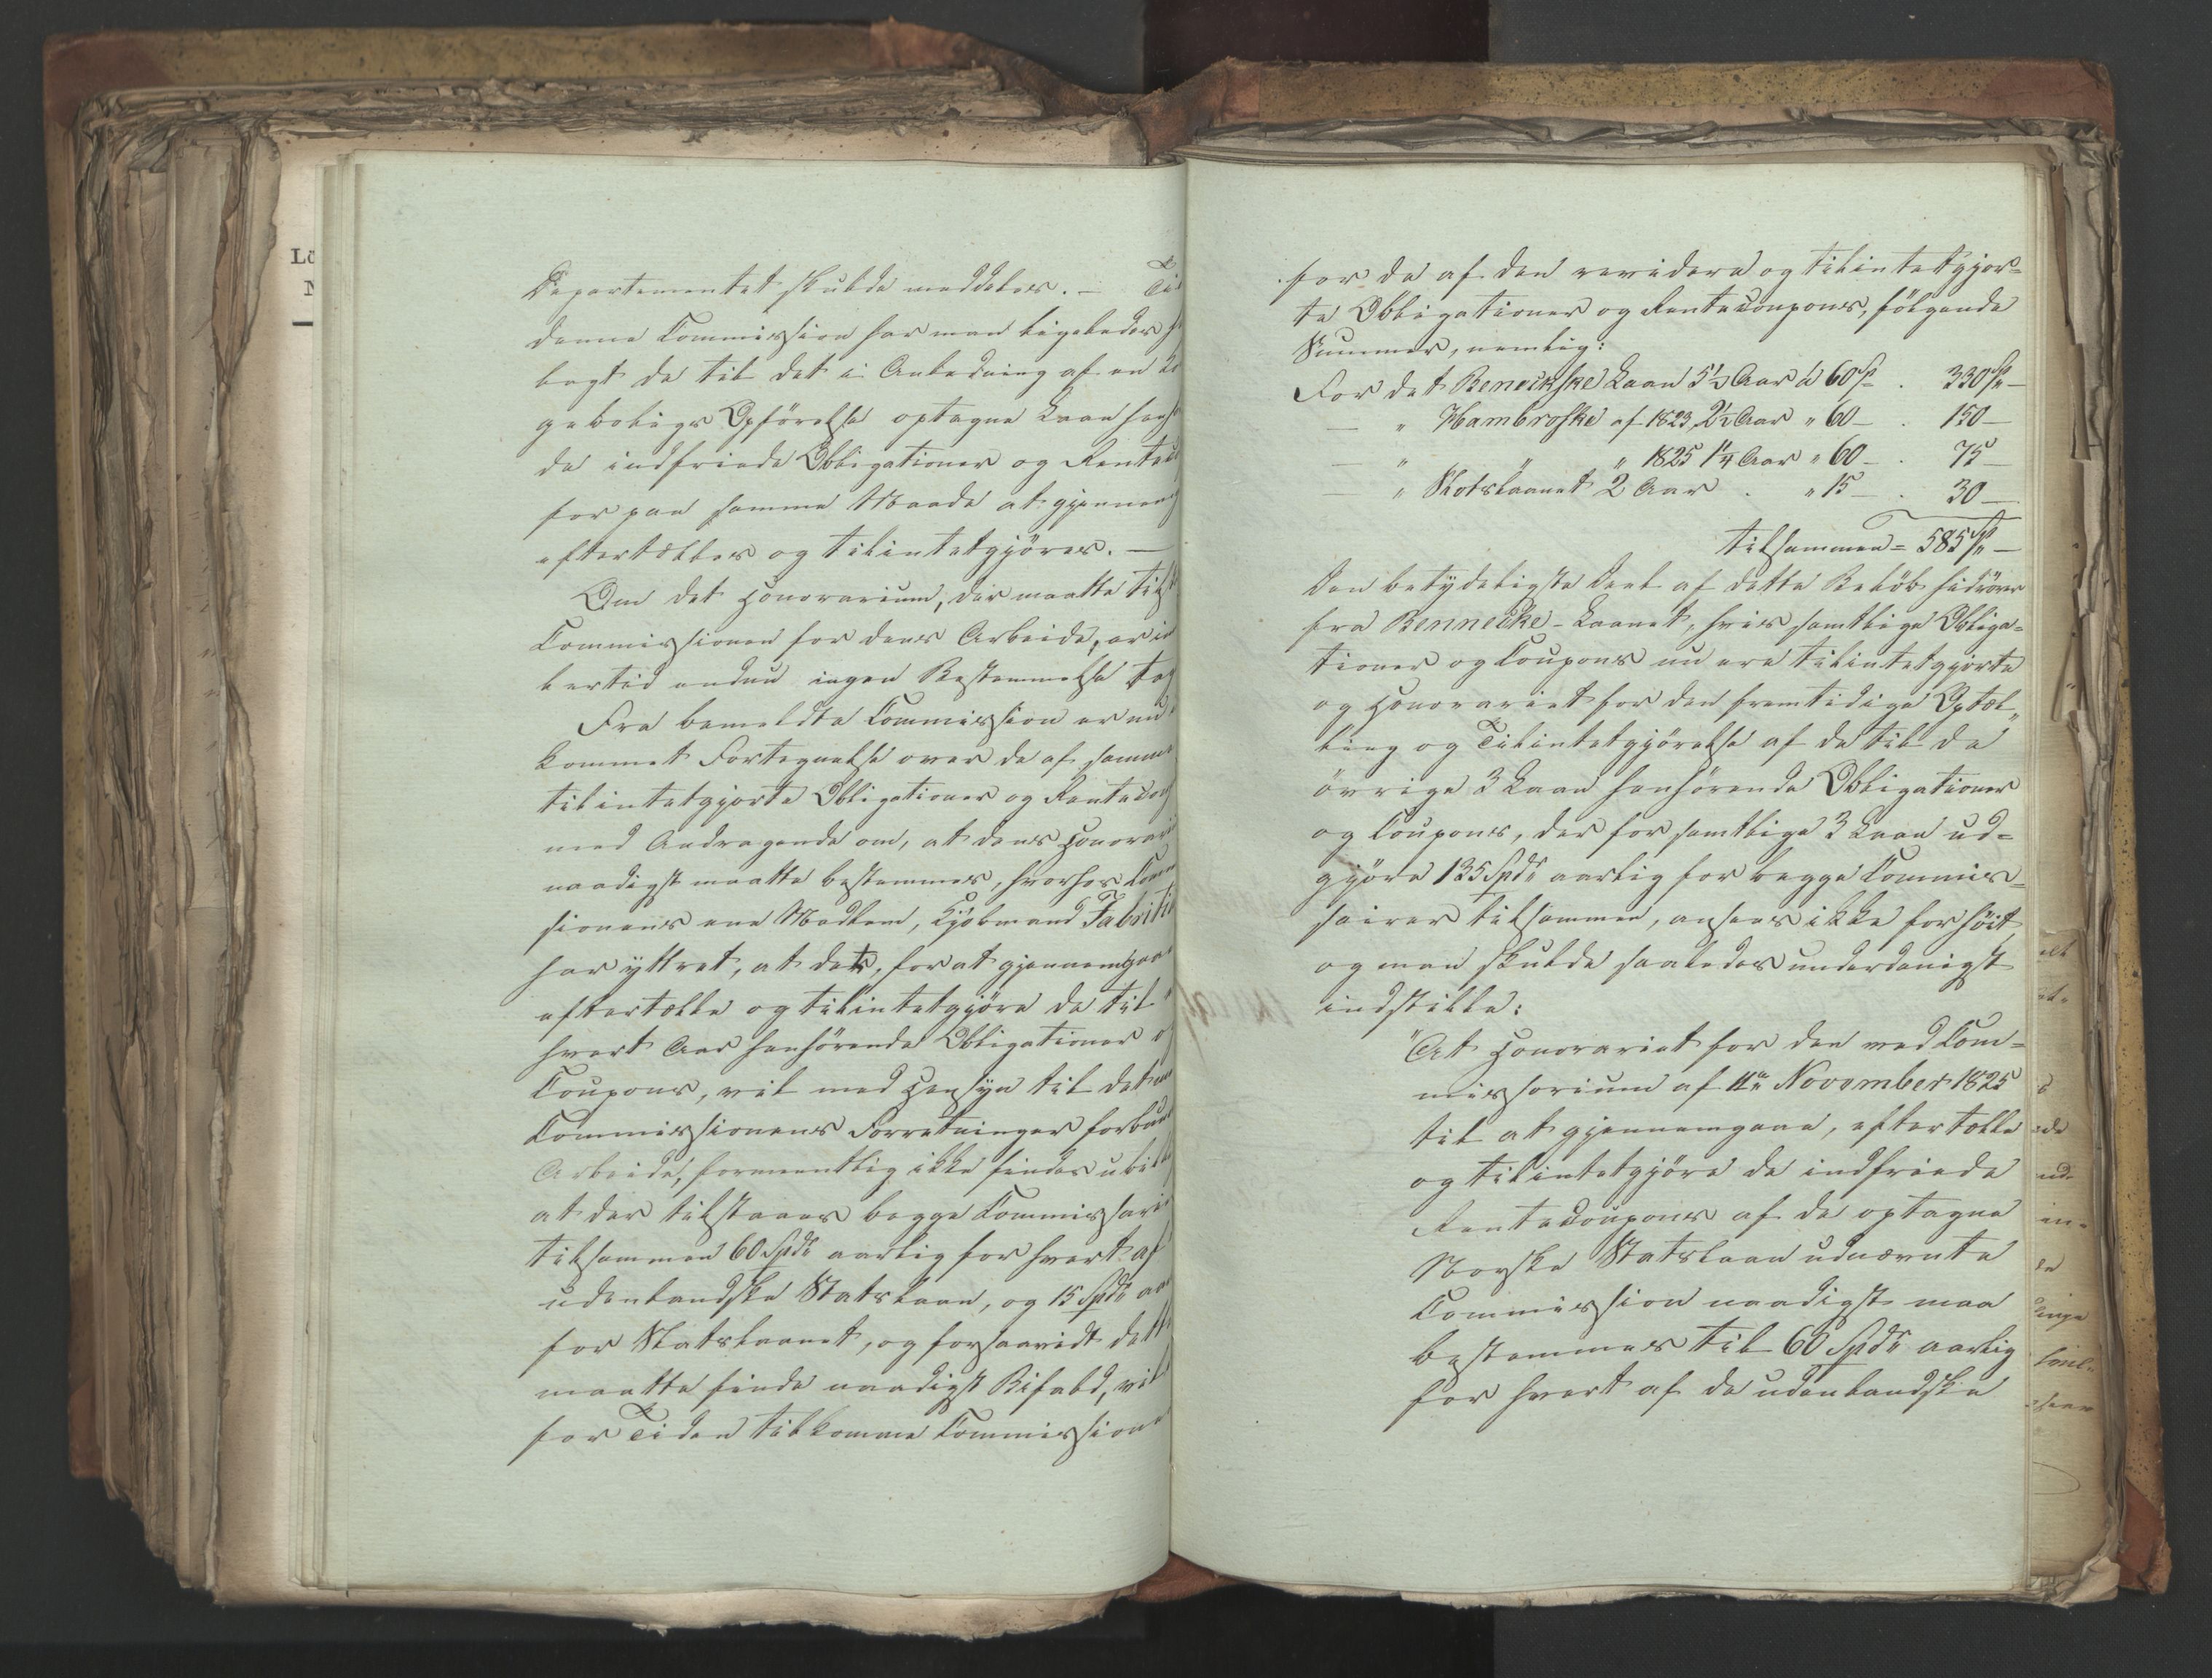 Departementet skulde meddeles. — Til
denne Commission har man ligeledes
lagt de til det i Anledning af en
geboligs Opförelse optagne Laan
de indfriede Obligationer og Rentec
for paa samme Maade at gjennem
eftertælles og tilintetgjöres. —
Om det Honorarium, der maatte
Commissionen for dens Arbeide, er
lertid endnu ingen Bestemmelse
Fra bemeldte Commission er nu
kommet Fortegnelse over de af samme
tilintetgjorte Obligationer og Rentecoup
med Andragende om, at dens Honorari
naadigst maatte bestemmes, hvorhos Com
sionens ene Medlem, Kjöbmand Fabriti
har yttret, at det, for at gjennemgaae
eftertælle og tilintetgjöre de til
hvert Aar henhörende Obligationer
Coupons, vil med Hensyn til det
Commissionens Forretninger forbun
Arbeide, formeentlig ikke findes ubil
at der tilstaaes begge Commissari
tilsammen 60 Spdr aarlig for hvert af
udenlandske Statslaan, og 15 Spdr aa
for Slotslaanet, og forsaavidt dette
maatte finde naadigst Bifald, vil
for Tiden tilkomme Commissione
for de af den reviderede og tilintetgjor=
te Obligationer og Rentecoupons, fölgende
Summer, nemlig:
For det Beneckske Laan 5½ Aar á 60 Sp . 330 Sp —
— " Hambroske af 1823 2½ Aar " 60 — . 150 —
— " " " 1825 1¼ Aar " 60 — . 75 —
" Slotslaanet 2 Aar . " 15 — . 30 —
tilsammen = 585 Sp —
Den betydeligste Deel af dette Belöb hidrörer
fra Bennecke-Laanet, hvis samtlige Obliga=
tioner og Coupons nu ere tilintetgjorte
og Honorariet for den fremtidige Optæl„
ling og Tilintetgjörelse af de til de
övrige 3 Laan henhörende Obligationer
og Coupons, der for samtlige 3 Laan ud=
gjöre 135 Spdr aarlig for begge Commis=
sairer tilsammen, ansees ikke for höit,
og man skulde saaledes underdanigst
indstille:
"At Honorariet for den ved Com=
missorium af 11te November 1825
til at gjennemgaae, eftertælle
og tilintetgjöre de indfriede
Rentecoupons af de optagne
Norske Statslaan udnævnte
Commission naadigst maa
bestemmes til 60 Spdr aarlig
for hvert af de udenlandske